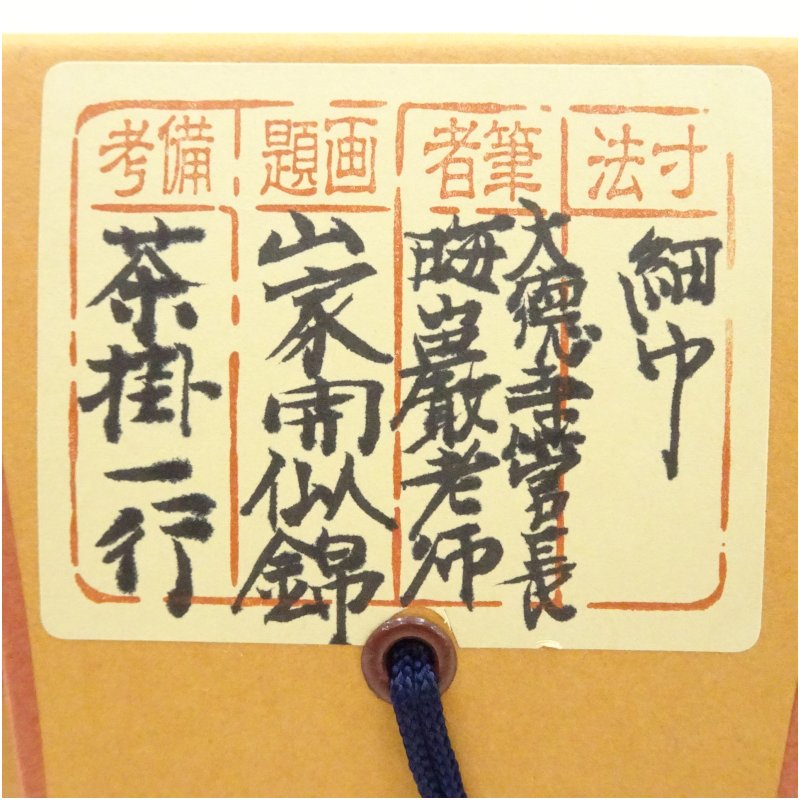 寸法
細巾
筆者
大徳寺管長
晦巌老師
画題
山家開似錦
備考
茶掛一行